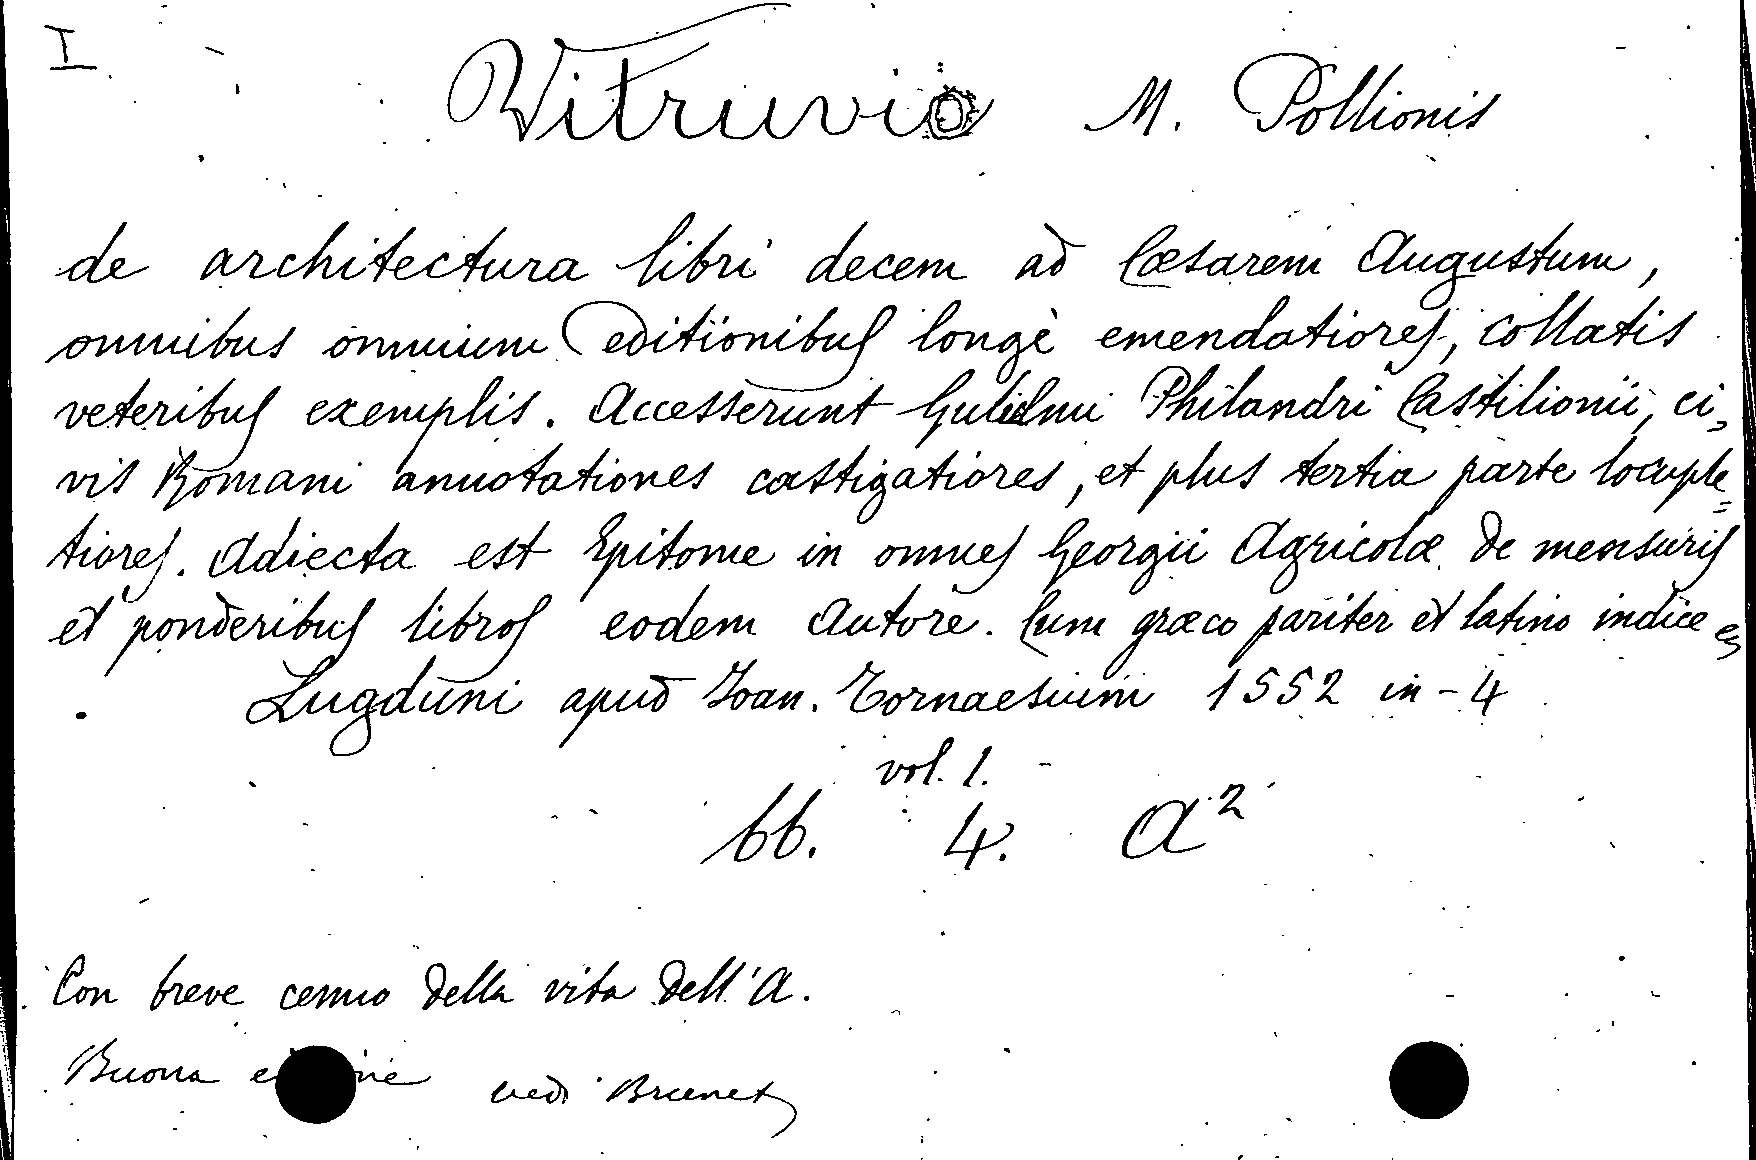 I
Vitruvio M. Pollionis
de architectura libri decem ad Cæsarem Augustum,
omnibus omnium editionibus longè emendatiores, collatis
veteribus exemplis. Accesserunt Gulielmi Philandri Castilionii, ci=
vis Romani annotationes castigatiores, et plus tertia parte locuple=
tiores. Adiecta est Epitome in omnes Georgii Agricolæ de mensuris
et ponderibus libros eodem autore. Cum græco pariter et latino indice
Lugduni apud Ioan. Tornaesium 1552 in-4
vol. 1.
bb. 4. A²
Con breve cenno della vita dell'A.
Buona vedi Brunet